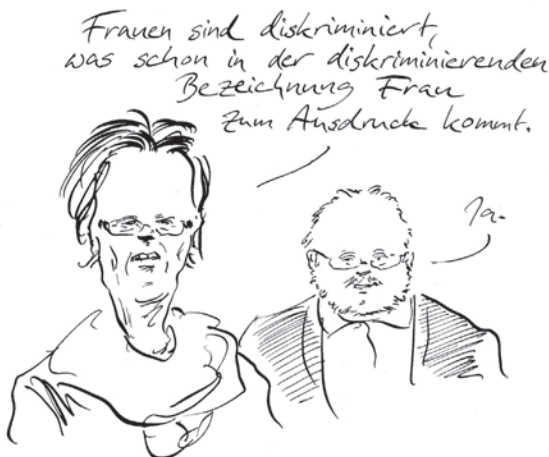 Frauen sind diskriminiert,
was schon in der diskriminierenden
Bezeichnung Frau
zum Ausdruck kommt.
Ja.